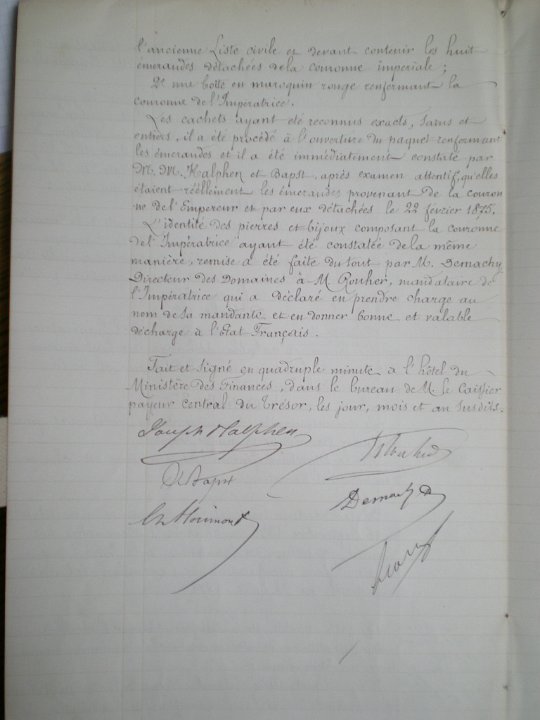 l'ancienne Liste civile et devant contenir les huit
émeraudes détachées de la couronne impériale ;
2º une boîte en maroquin rouge renfermant la
couronne de l'Impératrice.
Les cachets ayant été reconnus exacts, sains et
entiers, il a été procédé à l'ouverture du paquet renfermant
les émeraudes et il a été immédiatement constaté par
M. M. Halphen et Bapst, après examen attentif, qu'elles
étaient réellement les émeraudes provenant de la couron
ne de l'Empereur et par eux détachées le 22 février 1875.
L'identité des pierres et bijoux composant la couronne
de l'Impératrice ayant été constatée de la même
manière, remise a été faite du tout par M. Demachy
Directeur des Domaines à M. Rouher, mandataire de
l'Impératrice qui a déclaré en prendre charge au
nom de sa mandante et en donner bonne et valable
décharge à l'Etat Français.
Fait et signé en quadruple minute à l'hôtel du
Ministère des Finances, dans le bureau de M. le Caissier
payeur central du Trésor, les jour, mois et an susdits.
Joseph Halphen
Bapst
Demachy